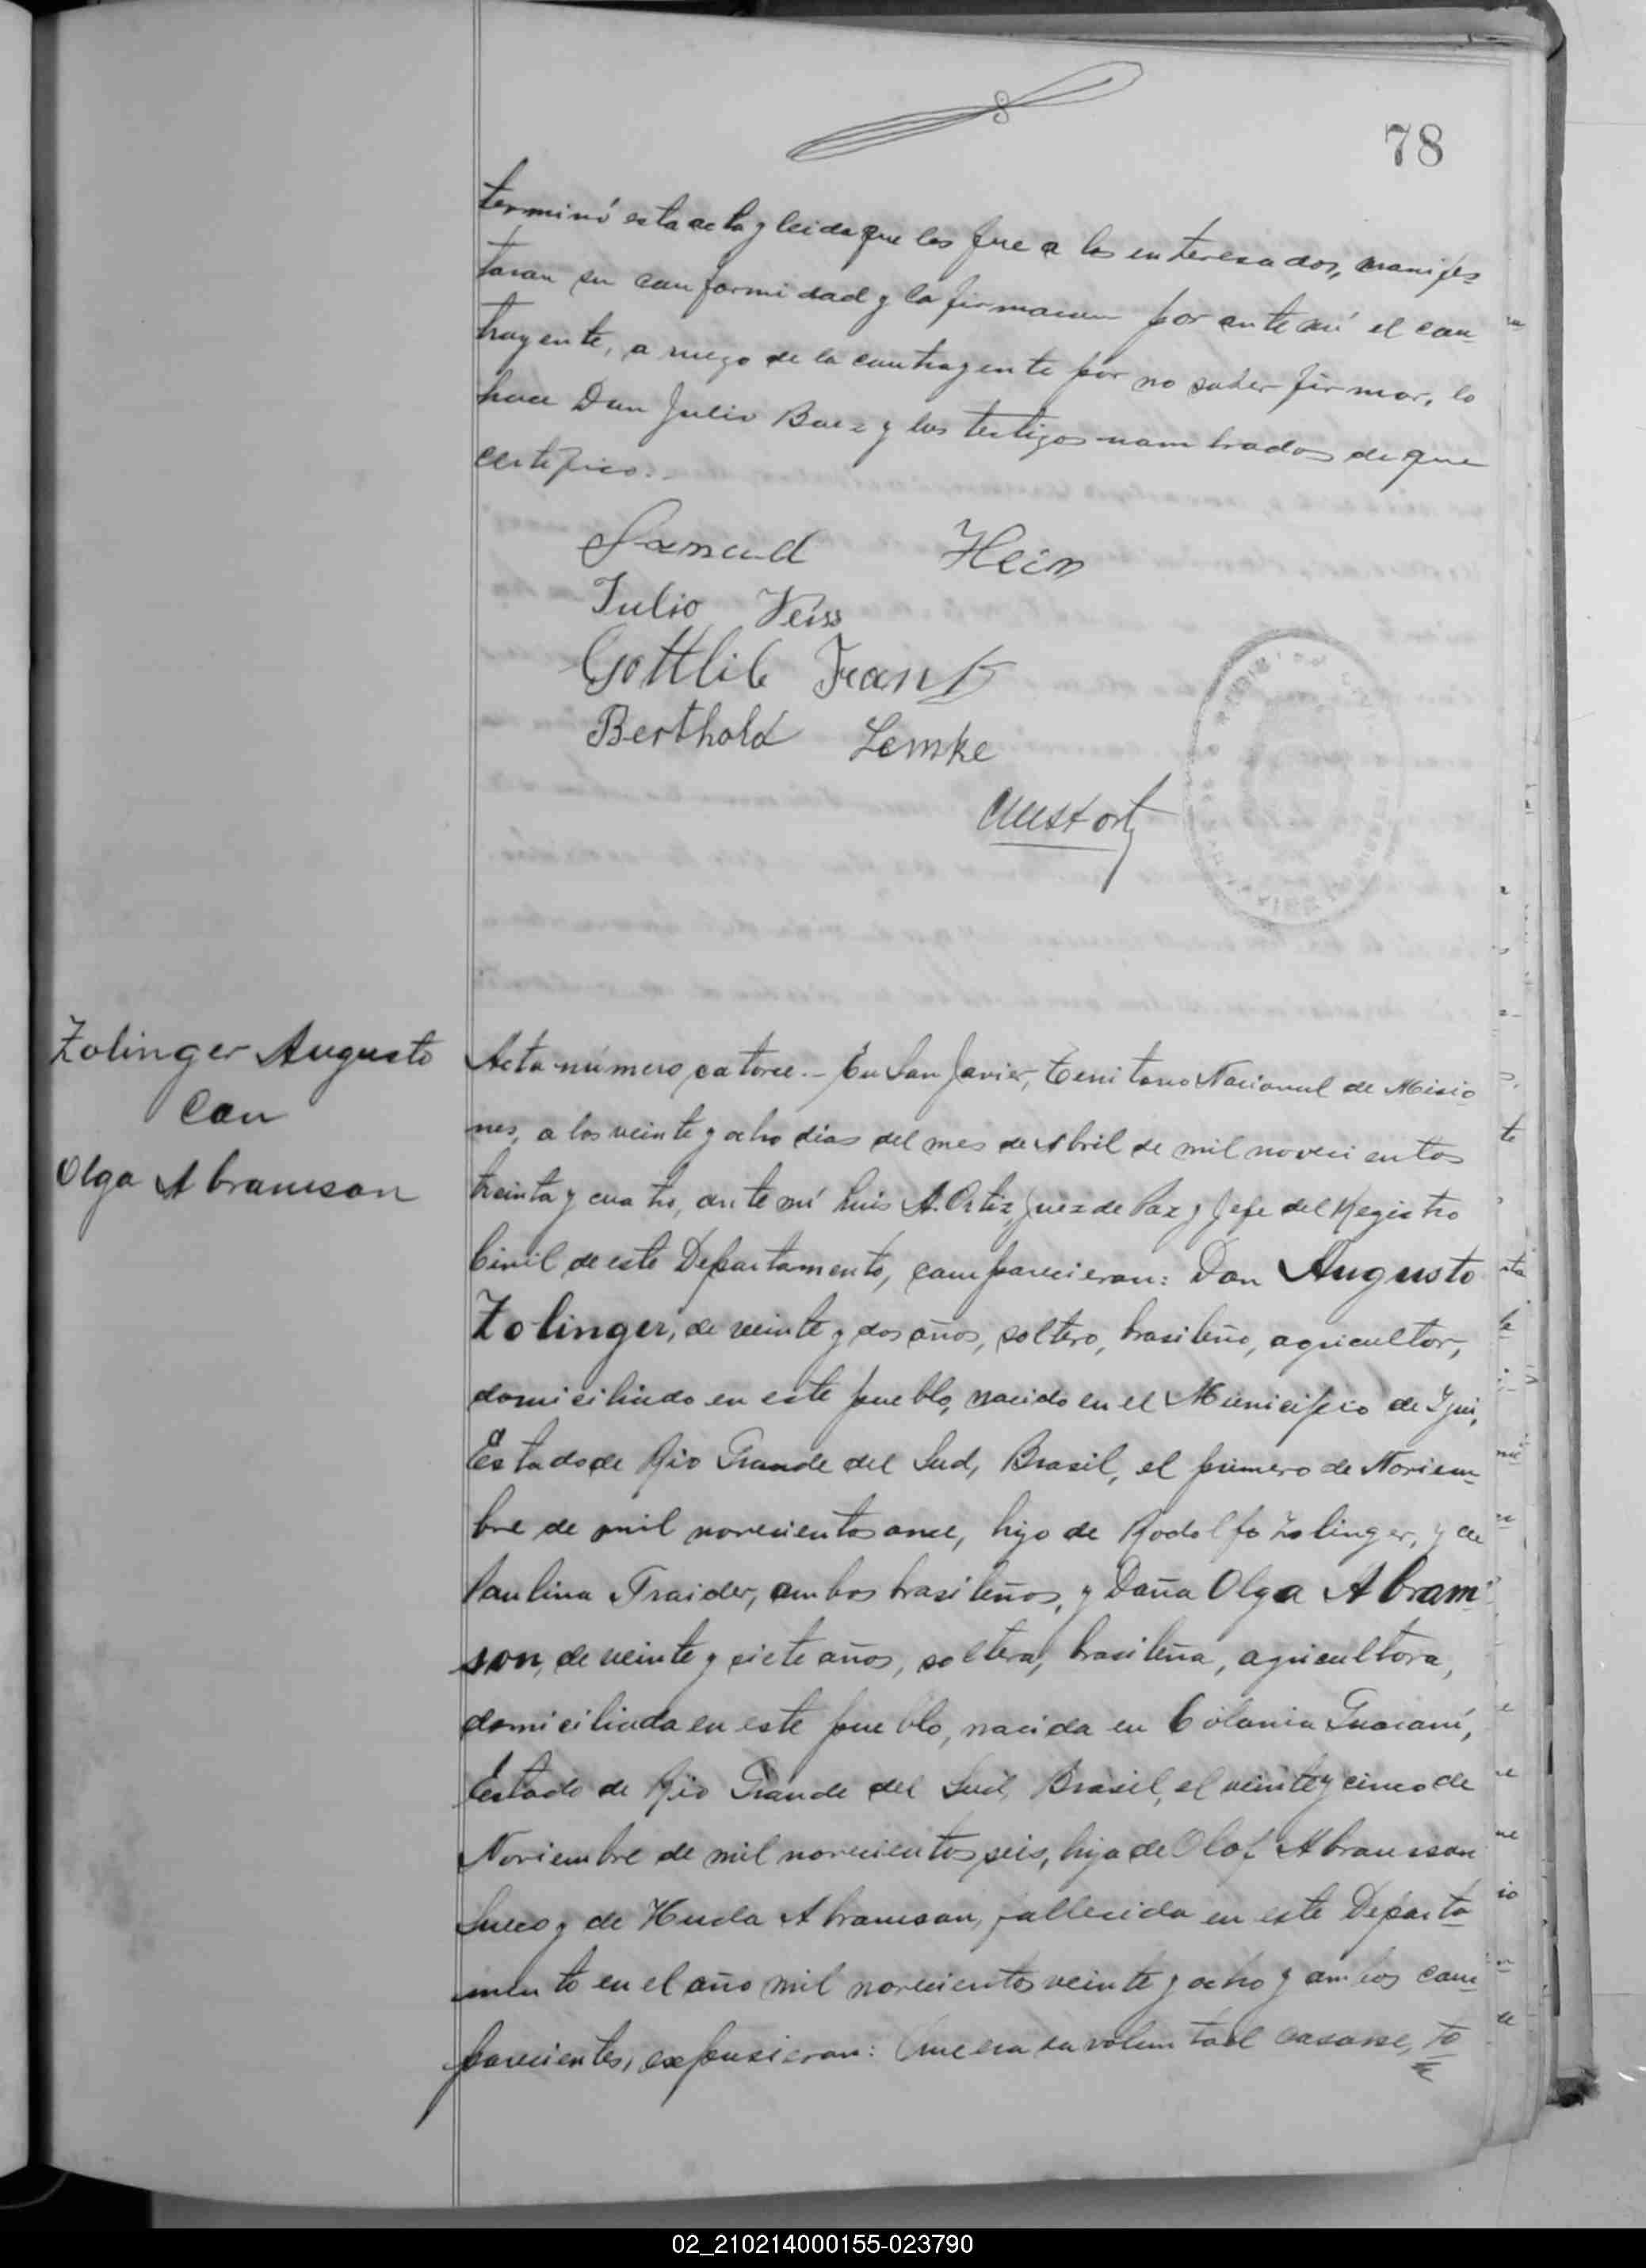 78
terminó esta acta y leida que les fue a los enteresados, manifes
taran su conformidad y la firmaron por ante mí el con
trayente, a ruego de la contrayente por no saber firmar, lo
hace Don Julio Baez y los testigos nombrados de que
certifico.-
Samuel Hein
Julio Veiss
Gottlib Frantz
Berthold Lemke
Zolinger Augusto
Con
Olga Abramson
Acta número catorce.- En San Javier, Territorio Nacional de Misio
nes, a los veinte y ocho días del mes de Abril de mil novecientos
treinta y cuatro, ante mí Luis A. Ortiz, Juez de Paz y Jefe del Registro
Civil de este Departamento, comparecieron: Don Augusto
Zolinger, de veinte y dos años, soltero, brasileño, agricultor,
domiciliado en este pueblo, nacido en el Municipio de Ijui,
Estado de Rio Grande del Sud, Brasil, el primero de Noviem
bre de mil novecientos once, hijo de Rodolfo Zolinger, y de
Paulina Fraider, ambos brasileños, y Doña Olga Abram
son, de veinte y siete años, soltera, brasileña, agricultora,
domiciliada en este pueblo, nacida en Colonia Guaraní,
Estado de Rio Grande del Sud, Brasil, el veinte y cinco de
Noviembre de mil novecientos seis, hija de Olof Abramson
Sueco y de Hulda Abramson, fallecida en este Departa
mento en el año mil novecientos veinte y ocho y ambos com
parecientes, expusieron: Que era su voluntad casarse, to
02_210214000155-023790